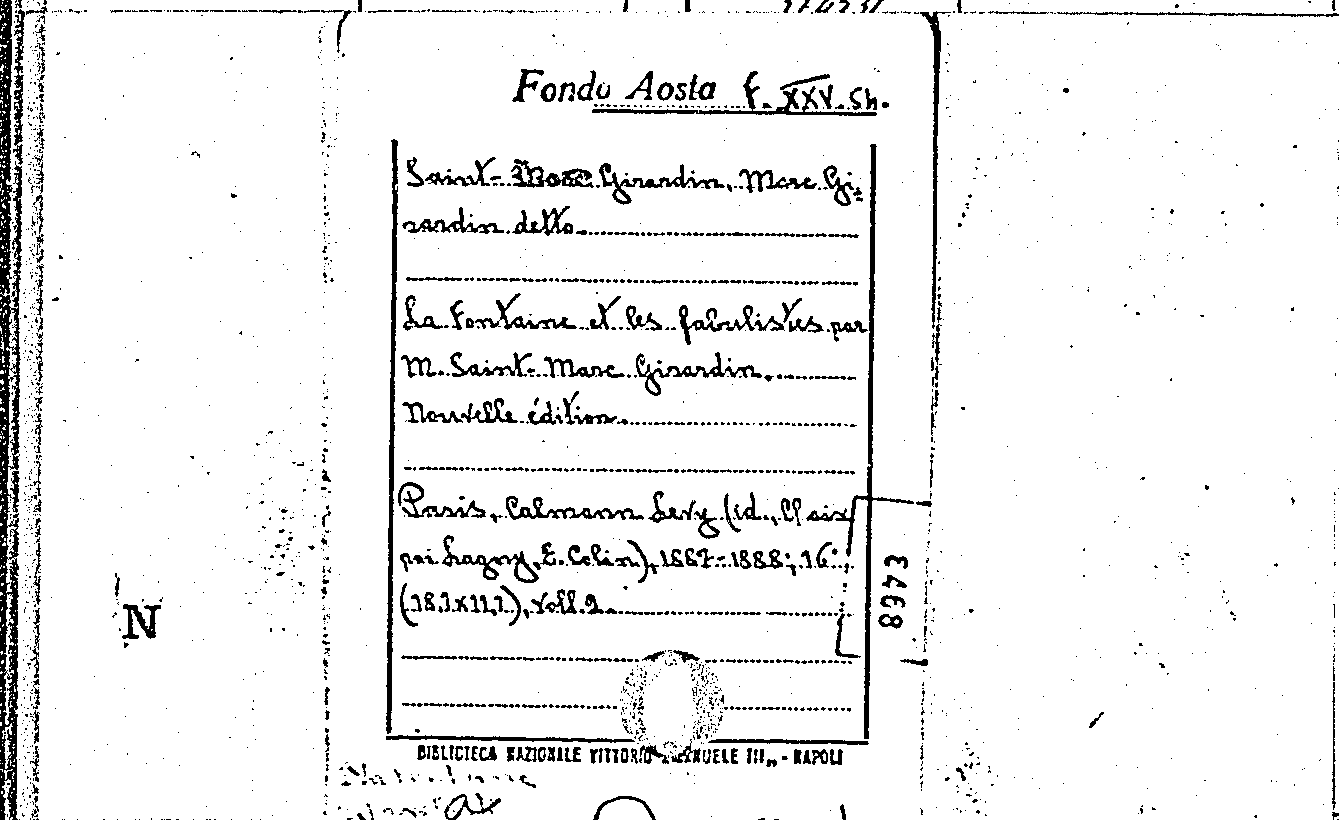 Fondo Aosta f. XXV. Sh.
Saint- Girardin, Marc Gi=
rardin detto.
La Fontaine et les fabulistes par
M. Saint-Marc Girardin.
Nouvelle édition.
Paris, Calmann Levy (id.,
poi Lagny, E. Colin), 1887-1888; 16°;
(18,1x11,7), voll. 2.
8468
N
BIBLIOTECA NAZIONALE VITTORIO EMANUELE III„ - NAPOLI